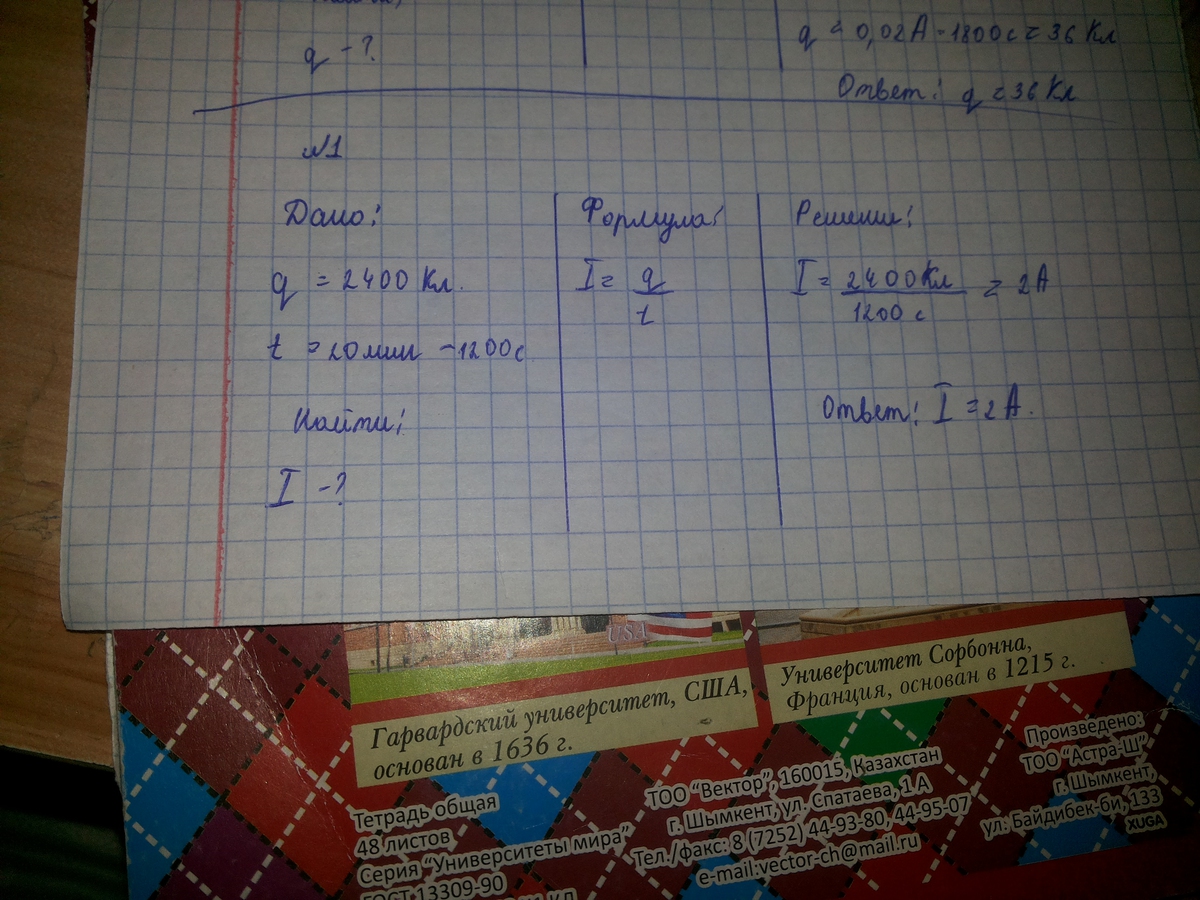 q - ?
q = 0,02А - 1800с = 36 Кл
Ответ: q = 36 Кл
№1
Дано:
q = 2400 Кл.
t = 20 мин - 1200с
Найти:
I - ?
Формула:
I = q
t
Решение:
I = 2400 Кл = 2А
1200 с
Ответ: I = 2 А.
USA
Гарвардский университет, США,
основан в 1636 г.
Университет Сорбонна,
Франция, основан в 1215 г.
Тетрадь общая
48 листов
Серия “Университеты мира”
ГОСТ 13309-90
ТОО “Вектор”, 160015, Казахстан
г. Шымкент, ул. Спатаева, 1 А
Тел./факс: 8 (7252) 44-93-80, 44-95-07
e-mail:vector-ch@mail.ru
Произведено:
ТОО “Астра-Ш”
г. Шымкент,
ул: Байдибек-би, 133
XUGA